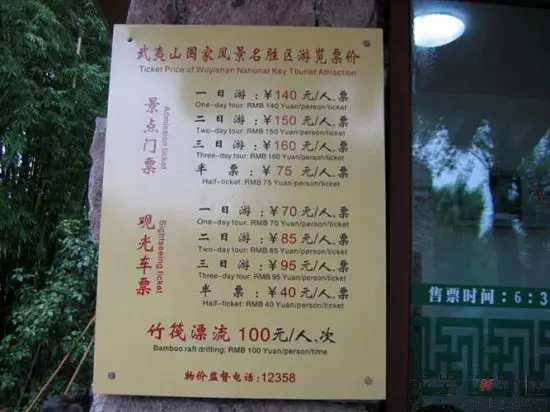 武夷山国家风景名胜区游览票价
Ticket Price of Wuyishan National Key Tourist Attraction
景点门票
Admission ticket
一日游：￥140元/人.票
One-day tour: RMB 140 Yuan/person/ticket
二日游：￥150元/人.票
Two-day tour: RMB 150 Yuan/person/ticket
三日游：￥160元/人.票
Three-day tour: RMB 160 Yuan/person/ticket
半票：￥75元/人.票
Half-ticket: RMB 75 Yuan/person/ticket
观光车票
Sightseeing ticket
一日游：￥70元/人.票
One-day tour: RMB 70 Yuan/person/ticket
二日游：￥85元/人.票
Two-day tour: RMB 85 Yuan/person/ticket
三日游：￥95元/人.票
Three-day tour: RMB 95 Yuan/person/ticket
半票：￥40元/人.票
Half-ticket: RMB 40 Yuan/person/ticket
竹筏漂流 100元/人.次
Bamboo raft drifting: RMB 100 Yuan/person/time
物价监督电话:12358
售票时间：6:3